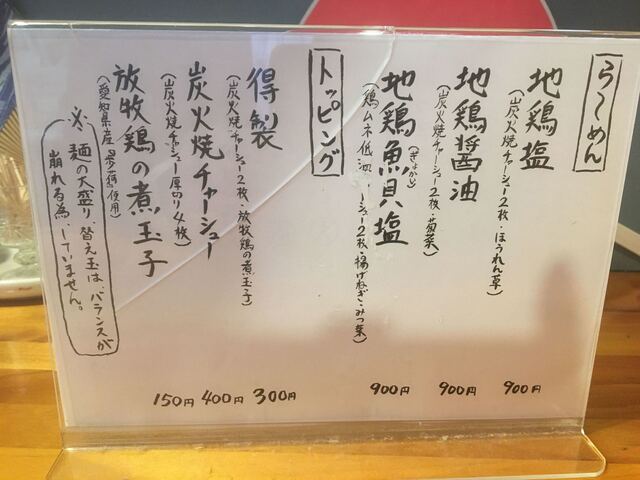 らーめん
地鶏塩
(炭火焼チャーシュー2枚・ほうれん草)
900円
地鶏醤油
(炭火焼チャーシュー2枚・青菜)
900円
地鶏魚貝塩
(ぎょかい)
(鶏ムネ低温 ーシュー2枚 揚げねぎ・みつ葉)
900円
トッピング
得製
(炭火焼チャーシュー2枚・放牧鶏の煮玉子)
300円
炭火焼チャーシュー
(炭火焼チャーシュー厚切り4枚)
400円
放牧鶏の煮玉子
(愛知県産 使用)
150円
※麺の大盛り、替え玉は、バランスが
崩れる為、していません。